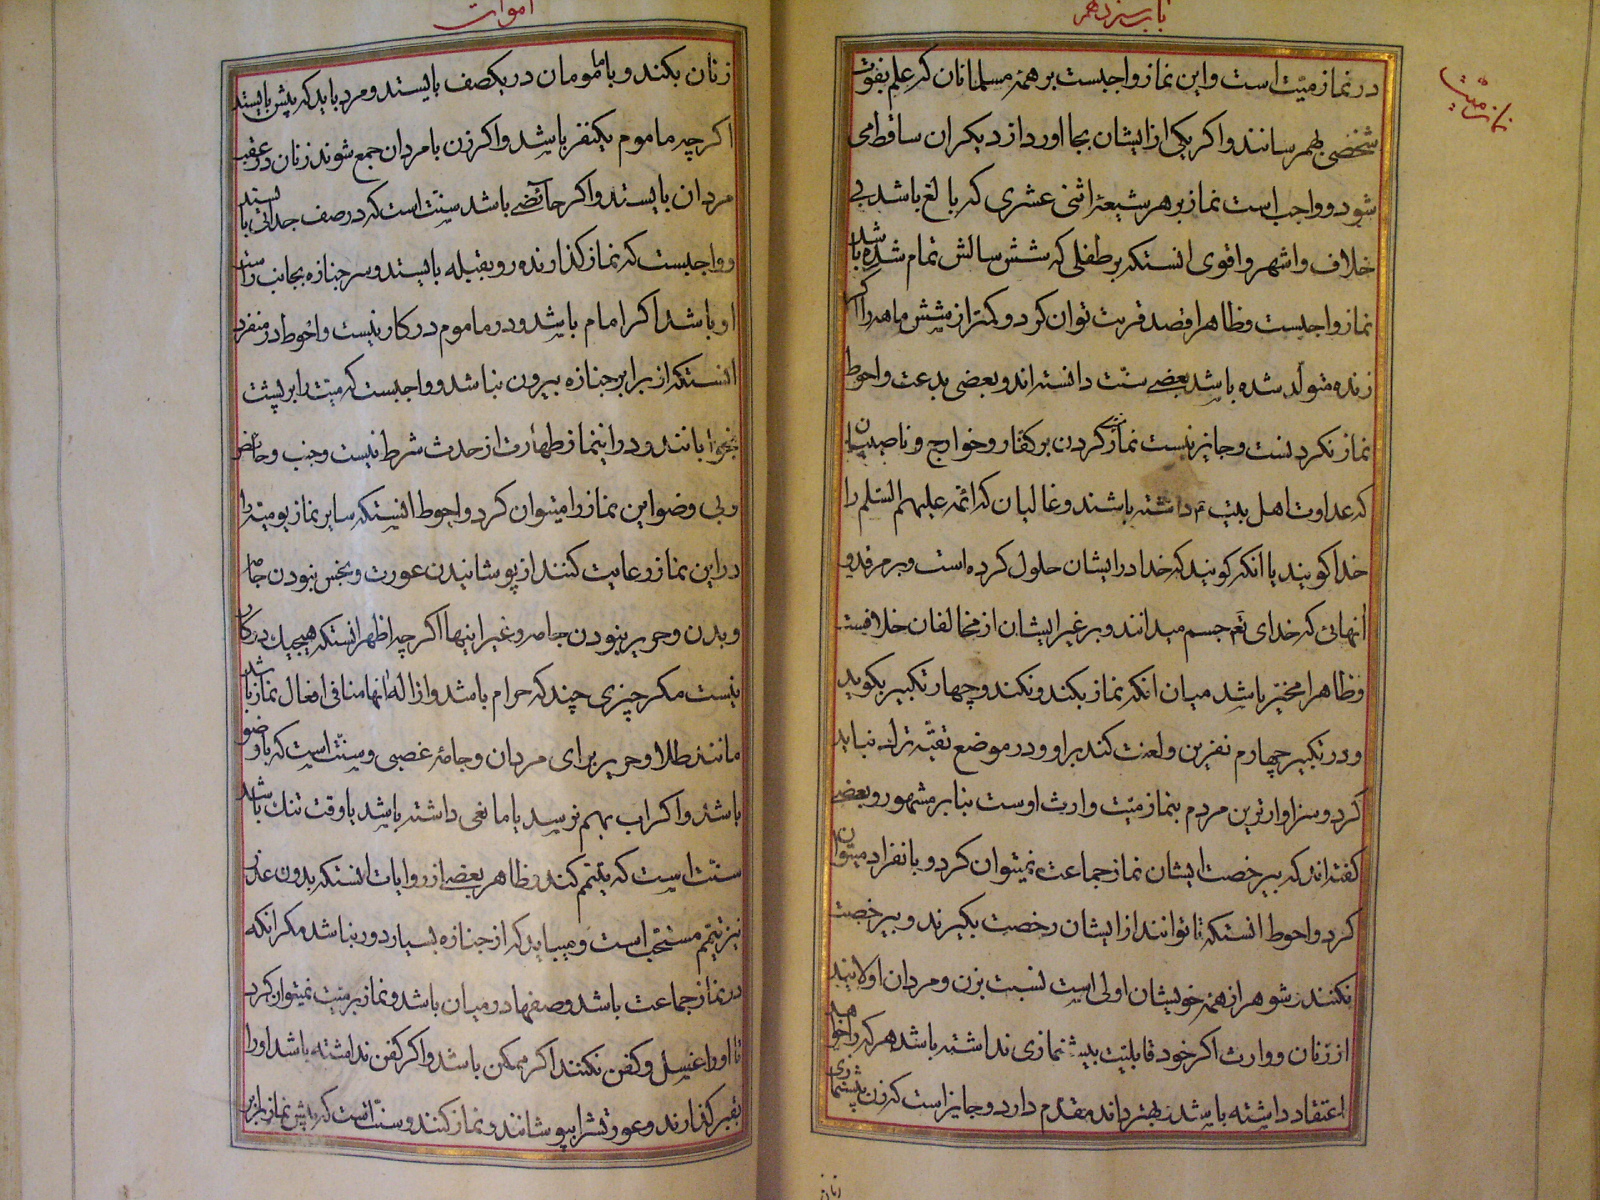 باب سیزدهم
نماز میّت
در نماز میّت است و این نماز واجبست بر همهٔ مسلمانان که علم بفوت
شخصی بهم رسانند و اکر یکی از ایشان بجا اورد از دیکران ساقط می
شود و واجب است نماز بر هر شیعهٔ اثنی عشری که بالغ باشد بی
خلاف و اشهر و اقوی انستکه بر طفلی که شش سالش تمام شده باشد
نماز واجبست و ظاهرا قصد قربت توان کرد و کمتر از شش ماهه را اکر
زنده متولّد شده باشد بعضی سنّت دانسته اند و بعضی بدعت و احوط
نماز نکردنست و جایز نیست نماز کردن بر کفّار و خوارج و ناصبیان
که عداوت اهل بیت داشته باشند و غالیان که ائمّه علیهم السّلم را
خدا کویند یا انکه کویند که خدا در ایشان حلول کرده است و بر
انهائی که خدای تعم جسم میدانند و بر غیر ایشان از مخالفان خلافست
و ظاهرا مخیّر باشد میان انکه نماز بکند و نکند و چهار تکبیر بکوید
و در تکبیر چهارم نفرین و لعنت کند بر او و در موضع تقیّه ترک نباید
کرد و سزاوارترین مردم بنماز میّت وارث اوست بنا بر مشهور و بعضی
کفته اند که بیرخصت ایشان نماز جماعت نمیتوان کرد و بانفراد میتوان
کرد و احوط انستکه تا توانند از ایشان رخصت بکیرند و بیرخصت
نکنند و شوهر از همهٔ خویشان اولی است نسبت بزن و مردان اولایند
از زنان و وارث اکر خود قابلیّت پیشنمازی نداشته باشد هر که را خواهد
اعتقاد داشته باشد بهتر داند مقدّم دارد و جایز است که زن پیشنمازی
زنان
اموات
زنان بکند و با مامومان در یکصف بایستد و مرد باید که پیش بایستد
اکر چه ماموم یکنفر باشد و اکر زن با مردان جمع شوند زنان در عقب
مردان بایستند و اکر حائضی باشد سنّت است که در صف جدائی بایستد
و واجبست که نماز کذارنده رو بقبله بایستد و سر جنازه بجانب راست
او باشد اکر امام باشد و در ماموم در کار نیست و احوط در منفرد
انستکه از برابر جنازه بیرون نباشد و واجبست که میّت را بر پشت
بخوابانند و در این نماز طهارت از حدث شرط نیست و جنب و حائض
و بی وضو این نماز را میتوان کرد و احوط انستکه سایر نماز یومیّه را
در این نماز رعایت کنند از پوشانیدن عورت و نجس نبودن جامه
و بدن و حریر نبودن جامه و غیر اینها اکر چه اظهر انستکه هیچیک در کار
نیست مکر چیزی چند که حرام باشد و ازالهٔ انها منافی افعال نماز باشد
مانند طلا و حریر برای مردان و جامهٔ غصبی و سنّت است که با وضو
باشد و اکر اب بهم نرسد یا مانعی داشته باشد یا وقت تنک باشد
سنّت است که تیمّم کند و ظاهر بعضی از روایات انستکه بدون عذر
نیز تیمّم مستحبّ است و میباید که از جنازه بسیار دور نباشد مکر انکه
در نماز جماعت باشد و صفها در میان باشد و نماز بر میّت نمیتوان کرد
تا او را غسل و کفن نکنند اکر ممکن باشد و اکر کفن نداشته باشد او را
بقبر کذارند و عورتش را بپوشانند و نماز کنند و سنّت است که پیش نماز